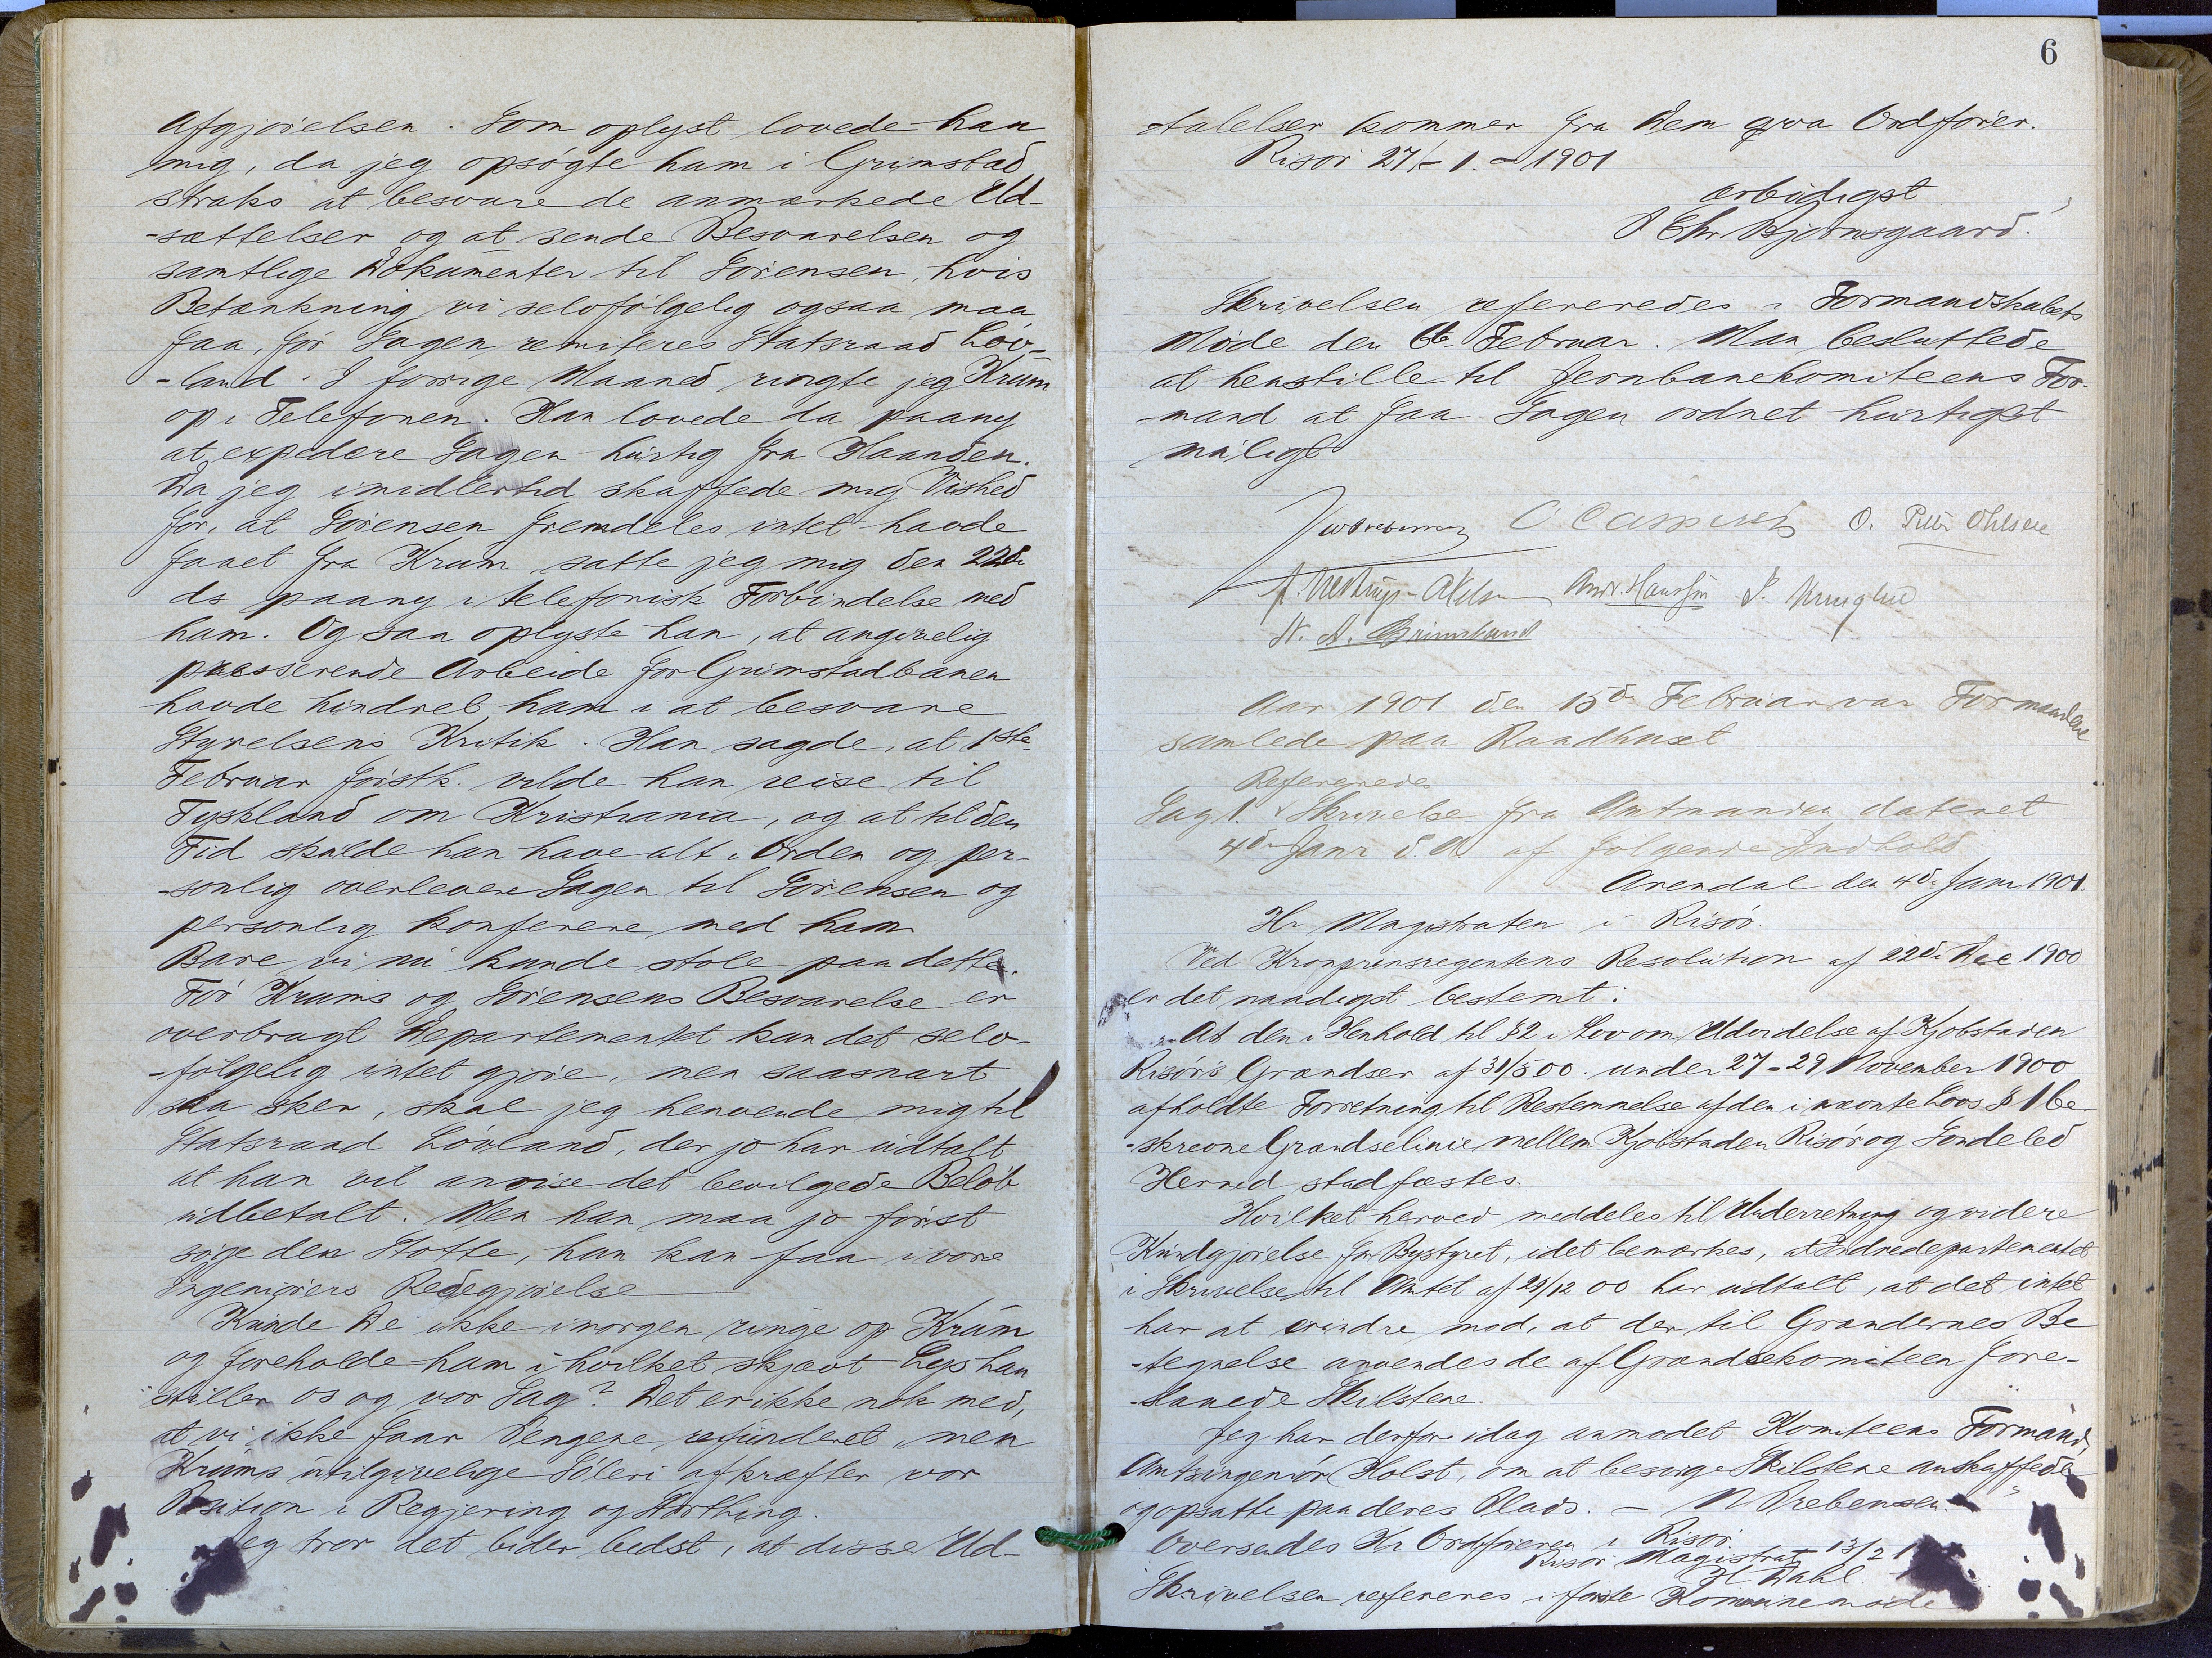 Afgjörelsen. Som oplyst lovede han
mig, da jeg opsögte ham i Grimstad
straks at besvare de anmærkede Ud-
-sættelser og at sende Besvarelsen og
samtlige Dokumenter til Sörensen, hvis
Betænkning vi selvfölgelig ogsaa maa
faa, før Sagen remiteres Statsraad Löv-
-land. I forrige Maaned ringte jeg Krum
op i Telefonen. Han lovede da paany
at expedere Sagen hurtig fra Haanden.
Da jeg imidlertid skaffede mig Vished
for, at Sörensen fremdeles intet havde
faaet fra Krum satte jeg mig den 22de
ds paany i telefonisk Forbindelse med
ham. Og saa oplyste han, at angivelig
presserende Arbeide for Grimstadbanen
havde hindret ham i at besvare
Styrelsens Kritik. Han sagde, at 1ste
Februar förstk. vilde han reise til
Tyskland om Kristiania, og at til den
Tid skulde han have alt i Orden og per-
-sonlig overlevere Sagen til Sörensen og
personlig konferere med ham
Bare vi nu kunde stole paa dette.
För Krums og Sörensens Besvarelse er
overbragt Departementet kan det selv-
-fölgelig intet gjöre, men saasnart
saa sker, skal jeg henvende mig til
Statsraad Lövland, der jo har udtalt
at han vil anvise det bevilgede Belöb
udbetalt. Men han maa jo först
söge den Stötte, han kan faa i vore
Ingeniörers Redegjörelse
Kunde De ikke imorgen ringe op Krum
og foreholde ham i hvilket skjævt Lys han
stiller os og vor Sag? Det er ikke nok med,
at vi ikke faar Pengene refunderet, men
Krums utilgivelige Söleri afkræfter vor
Position i Regjering og Storthing.
Jeg tror det bider bedst, at disse Ud-
6
-talelser kommer fra Dem qva Ordförer.
Risör 27/-1.-1901
ærbödigst
P Chr Bjornsgaard.
Skrivelsen refereredes i Formandskabets
Möde den 6te Februar. Man besluttede
at henstille til Jernbanekomiteens For-
-mand at faa Sagen ordnet hurtigst
muligt
O Caspersen O. Peter Ohlsen
Andr. Hansen
N. A. Grimslund
Aar 1901 den 15de Februar var Formændene
samlede paa Raadhuset
Refereredes
Sag 1. Skrivelse fra Amtmanden dateret
4de Janr d.A af følgende Indhold
Arendal den 4de Janr 1901.
Hr Magistraten i Risör.
Ved Kronprinsregentens Resolution af 22de Dec 1900
er det naadigst bestemt:
At den i Henhold til §2 i Lov om Udvidelse af Kjöbstaden
Risörs Grændser af 31/5 00. under 27-29 November 1900
afholdte Forretning til Bestemmelse af den i nævnte Lovs § 1 be-
-skrevne Grændselinie mellem Kjöbstaden Risör og Söndeled
Herred stadfæstes.
Hvilket herved meddeles til Underretning og videre
Kundgjörelse for Bystyret, idet bemærkes, at Indredepartementet
i Skrivelse til Amtet af 28/12 00 har udtalt, at det intet
har at erindre mod, at der til Grændernes Be
-tegnelse anvendes de af Grændsekomiteen fore-
-slaaede Skilstene.
Jeg har derfor idag anmodet Komiteens Formand,
Amtsingeniör Holst, om at besörge Skilstene anskaffede
og opsatte paa deres Plads. - N Prebensen.
Oversendes Hr Ordföreren i Risör.
Risör Magistrat 13/2 1
H Dahl
Skrivelsen refereres i förste Kommunemöde